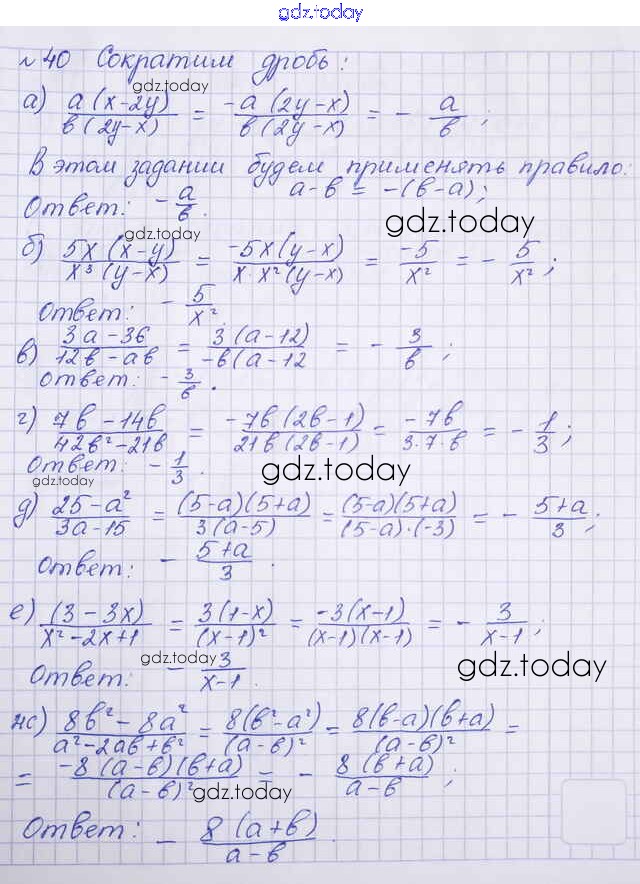 gdz.today
№40 Сократим дробь:
gdz.today
а) a(x-2y)/b(2y-x) = -a(2y-x)/b(2y-x) = - a/b;
В этом задании будем применять правило:
a-b = -(b-a);
Ответ: - a/b.
gdz.today
gdz.today
б) 5x(x-y)/x³(y-x) = -5x(y-x)/x·x²(y-x) = -5/x² = - 5/x²;
Ответ: - 5/x².
в) 3a-36/12b-ab = 3(a-12)/-b(a-12 = - 3/b;
Ответ: - 3/b.
г) 7b-14b/42b²-21b = -7b(2b-1)/21b(2b-1) = -7b/3·7·b = - 1/3;
Ответ: - 1/3.
gdz.today
gdz.today
д) 25-a²/3a-15 = (5-a)(5+a)/3(a-5) = (5-a)(5+a)/(5-a)·(-3) = - 5+a/3;
Ответ: - 5+a/3.
е) (3-3x)/x²-2x+1 = 3(1-x)/(x-1)² = -3(x-1)/(x-1)(x-1) = - 3/x-1;
gdz.today
gdz.today
Ответ: - 3/x-1.
ж) 8b²-8a²/a²-2ab+b² = 8(b²-a²)/(a-b)² = 8(b-a)(b+a)/(a-b)² =
= -8(a-b)(b+a)/(a-b)² = - 8(b+a)/a-b;
gdz.today
Ответ: - 8(a+b)/a-b.